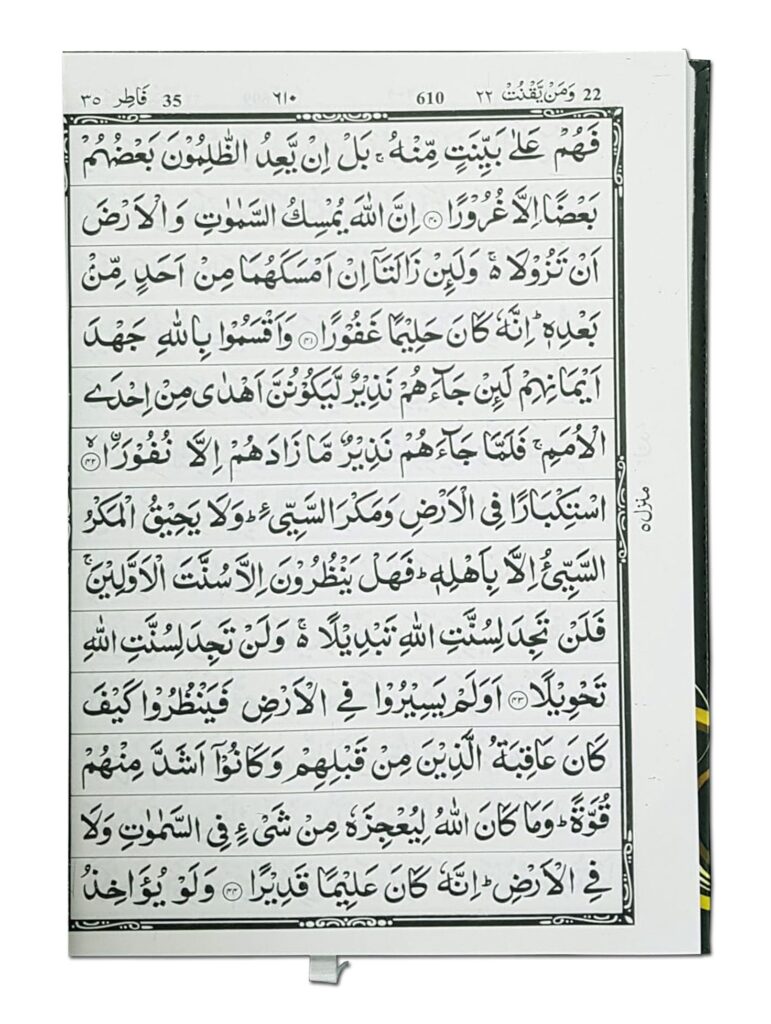 22 وَمَنْ يَّقْنُتْ ٢٢ 610 ٦١٠ 35 فَاطِر ٣٥
فَهُمْ عَلٰى بَيِّنَتٍ مِّنْهُ ۚ بَلْ اِنْ يَّعِدُ الظّٰلِمُوْنَ بَعْضُهُمْ
بَعْضًا اِلَّا غُرُوْرًا ﴿۴۰﴾ اِنَّ اللّٰهَ يُمْسِكُ السَّمٰوٰتِ وَالْاَرْضَ
اَنْ تَزُوْلَا ۬ۚ وَلَئِنْ زَالَتَاۤ اِنْ اَمْسَكَهُمَا مِنْ اَحَدٍ مِّنْۢ
بَعْدِهٖ ؕ اِنَّهٗ كَانَ حَلِيْمًا غَفُوْرًا ﴿۴۱﴾ وَاَقْسَمُوْا بِاللّٰهِ جَهْدَ
اَيْمَانِهِمْ لَئِنْ جَآءَهُمْ نَذِيْرٌ لَّيَكُوْنُنَّ اَهْدٰى مِنْ اِحْدَى
الْاُمَمِ ۚ فَلَمَّا جَآءَهُمْ نَذِيْرٌ مَّا زَادَهُمْ اِلَّا نُفُوْرَا ۙ﴿۴۲﴾
اسْتِكْبَارًا فِى الْاَرْضِ وَمَكْرَ السَّيِّئِ ؕ وَلَا يَحِيْقُ الْمَكْرُ
السَّيِّئُ اِلَّا بِاَهْلِهٖ ؕ فَهَلْ يَنْظُرُوْنَ اِلَّا سُنَّتَ الْاَوَّلِيْنَ ۚ
فَلَنْ تَجِدَ لِسُنَّتِ اللّٰهِ تَبْدِيْلًا ۬ۚ وَلَنْ تَجِدَ لِسُنَّتِ اللّٰهِ
تَحْوِيْلًا ﴿۴۳﴾ اَوَلَمْ يَسِيْرُوْا فِى الْاَرْضِ فَيَنْظُرُوْا كَيْفَ
كَانَ عَاقِبَةُ الَّذِيْنَ مِنْ قَبْلِهِمْ وَكَانُوْۤا اَشَدَّ مِنْهُمْ
قُوَّةً ؕ وَمَا كَانَ اللّٰهُ لِيُعْجِزَهٗ مِنْ شَىْءٍ فِى السَّمٰوٰتِ وَلَا
فِى الْاَرْضِ ؕ اِنَّهٗ كَانَ عَلِيْمًا قَدِيْرًا ﴿۴۴﴾ وَلَوْ يُؤَاخِذُ
منزل ۵